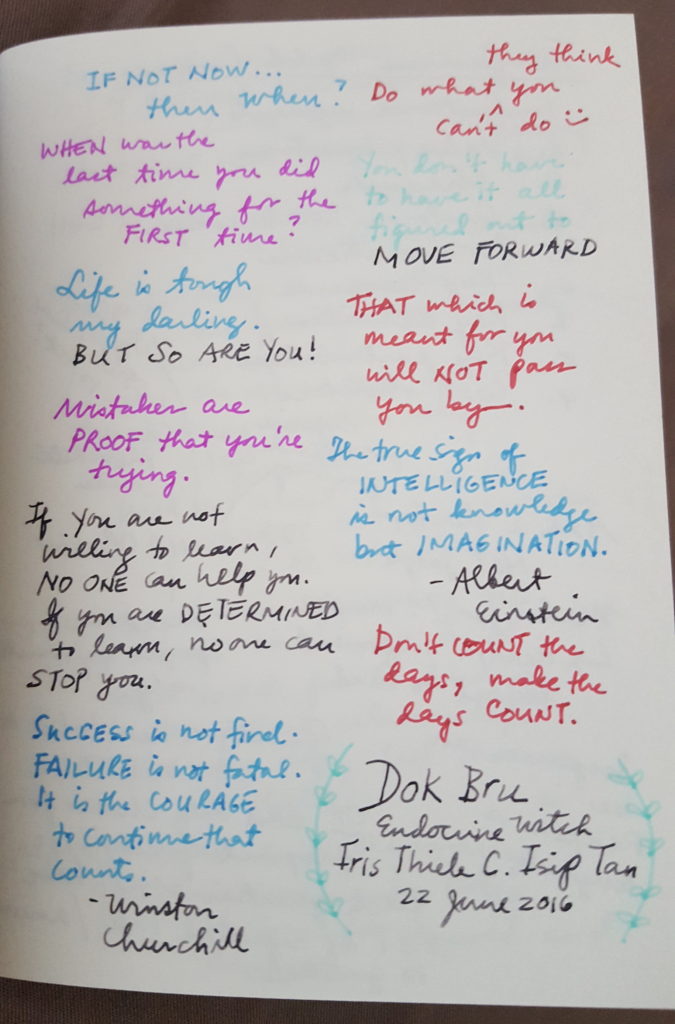 IF NOT NOW...
then when?
WHEN was the
last time you did
something for the
FIRST time?
Life is tough
my darling.
BUT SO ARE YOU!
Mistakes are
PROOF that you're
trying.
If you are not
willing to learn,
NO ONE can help you.
If you are DETERMINED
to learn, no one can
STOP you.
SUCCESS is not final.
FAILURE is not fatal.
It is the COURAGE
to continue that
counts.
- Winston
Churchill
they think
Do what you ^
can't do :)
You don't have
to have it all
figured out to
MOVE FORWARD
THAT which is
meant for you
will NOT pass
you by.
The true sign of
INTELLIGENCE
is not knowledge
but IMAGINATION.
- Albert
Einstein
Don't COUNT the
days, make the
days COUNT.
Dok Bru
Endocrine Witch
Iris Thiele C. Isip Tan
22 June 2016